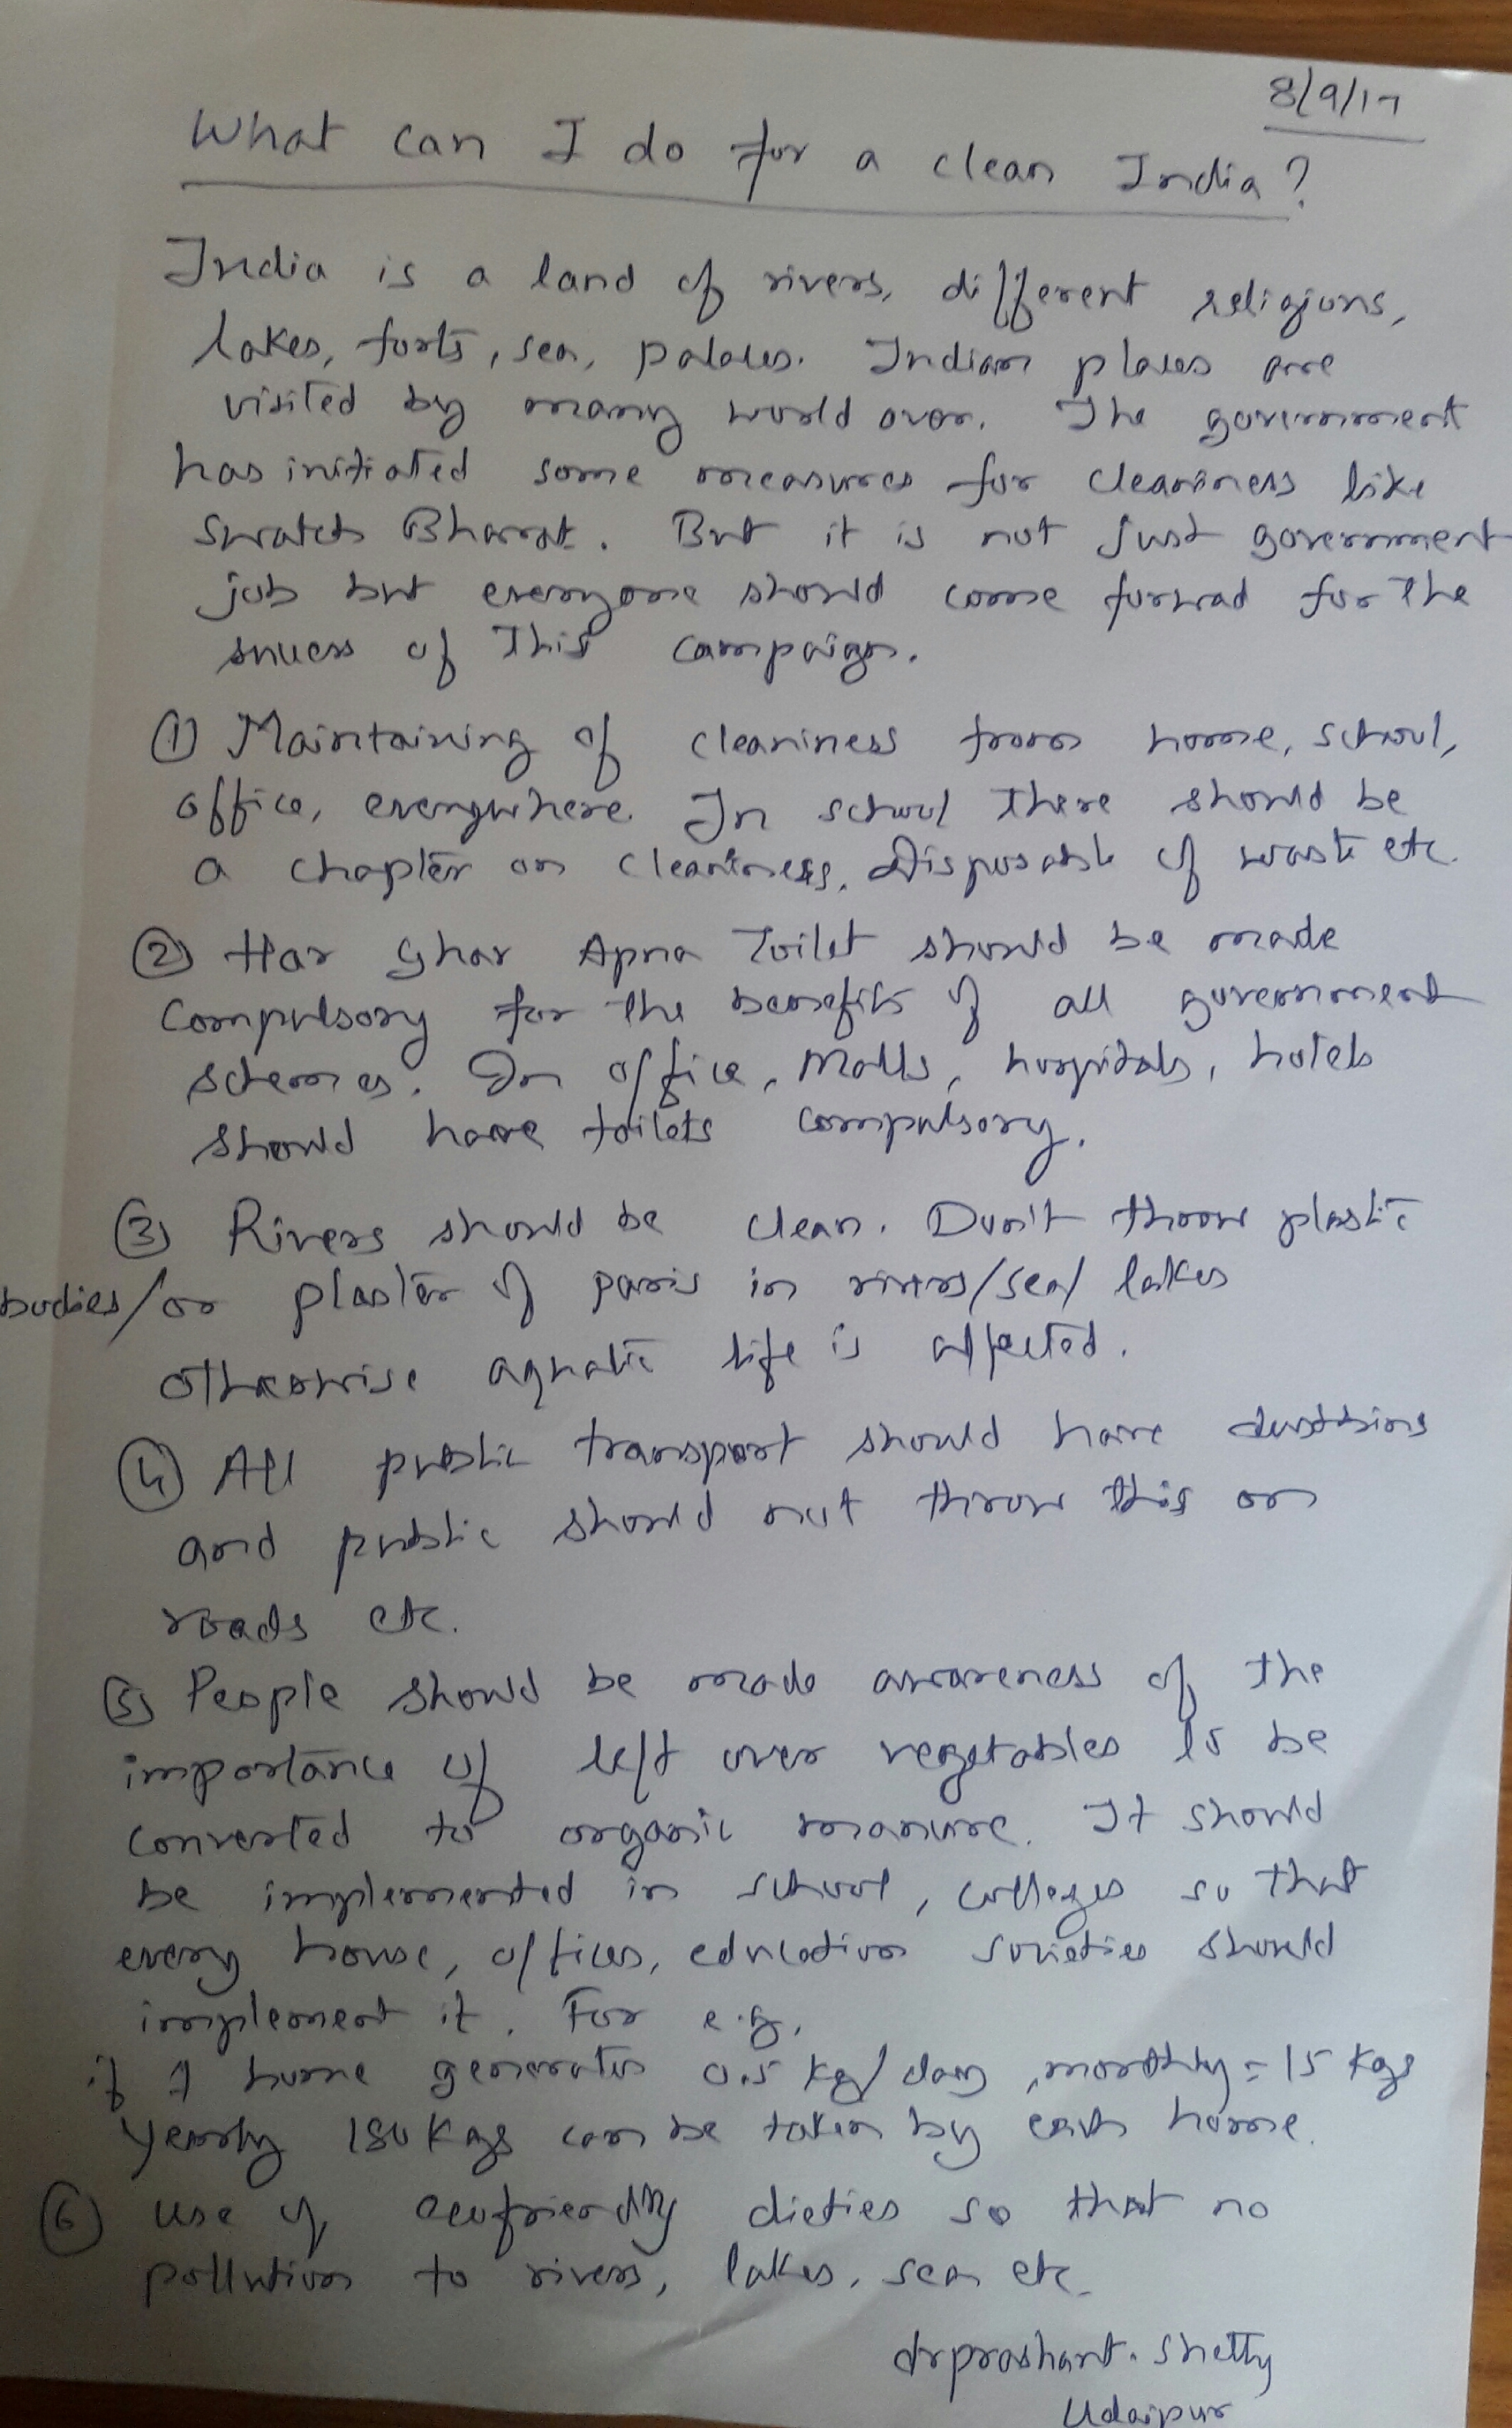 8/9/17
What can I do for a clean India?
India is a land of rivers, different religions,
lakes, forts, sea, palaces. Indian places are
visited by many world over. The government
has initiated some measures for cleaniness like
Swatch Bharat. But it is not just government
job but everyone should come forwad for the
success of this campaign.
① Maintaining of cleaniness from home, school,
office, everywhere. In school there should be
a chapter on cleaniness, Disposable of waste etc.
② Har Ghar Apna Toilet should be made
compulsory for the benefits of all government
schemes. In office, Malls, hospitals, hotels
should have toilets compulsory.
③ Rivers should be clean. Don't throw plastic
bodies/or plaster of paris in rivers/sea/lakes
otherwise aquatic life is affected.
④ All public transport should have dustbins
and public should not throw this on
roads etc.
⑤ People should be made awareness of the
importance of left over vegetables to be
converted to organic manure. It should
be implemented in school, colleges so that
every house, offices, education societies should
implement it. For e.g.
if 1 home generates 0.5 kg/day, monthly = 15 kgs
yearly 180 Kgs can be taken by each home.
⑥ use of ecofriendly dieties so that no
pollution to rivers, lakes, sea etc.
drprashant. Shetty
Udaipur